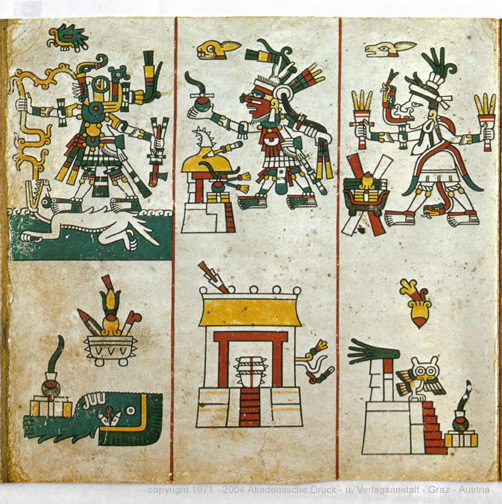 copyright 1971 - 2004 Akademische Druck - u. Verlagsanstalt - Graz - Austria